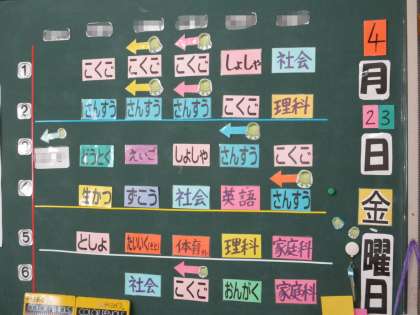 4
月
23
日
金
曜
日
1 こくご こくご こくご しょしゃ 社会
2 さんすう さんすう さんすう こくご 理科
3 どうとく えいご しょしゃ さんすう こくご
生かつ ずこう 社会 英語 さんすう
5 としょ たいいく 体育 理科 家庭科
6 社会 こくご おんがく 家庭科